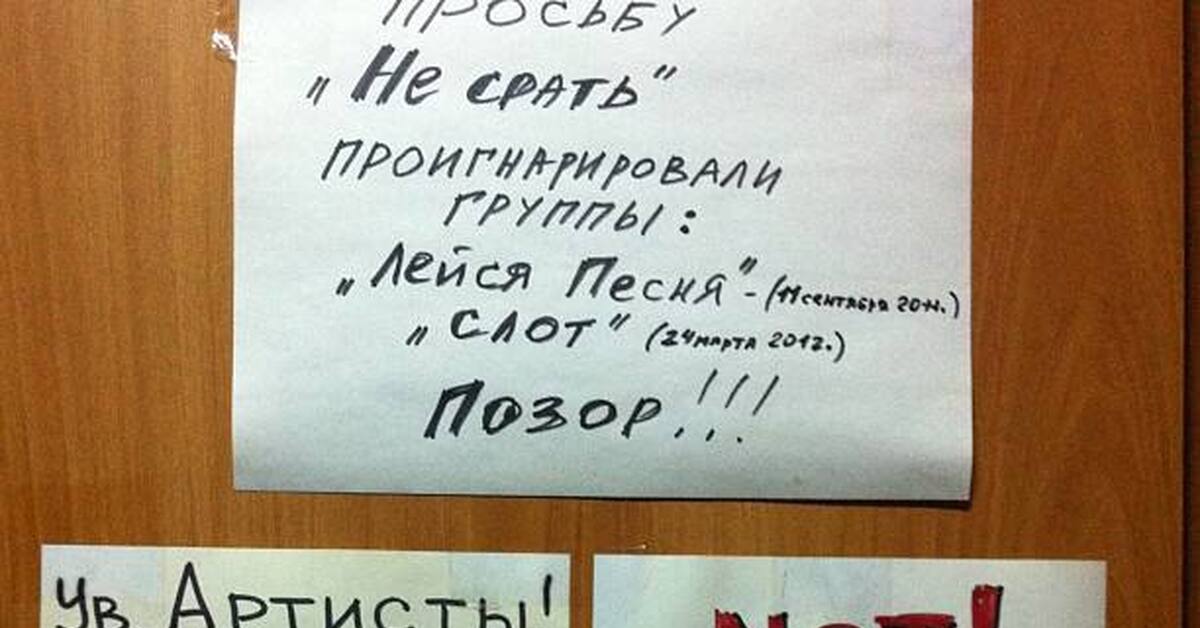 ПРОСЬБУ
„Не срать"
ПРОИГНАРИРОВАЛИ
ГРУППЫ:
„Лейся Песня" - (11 сентября 2011.)
„СЛОТ" (24 марта 2012.)
ПОЗОР!!!
Ув Артисты!